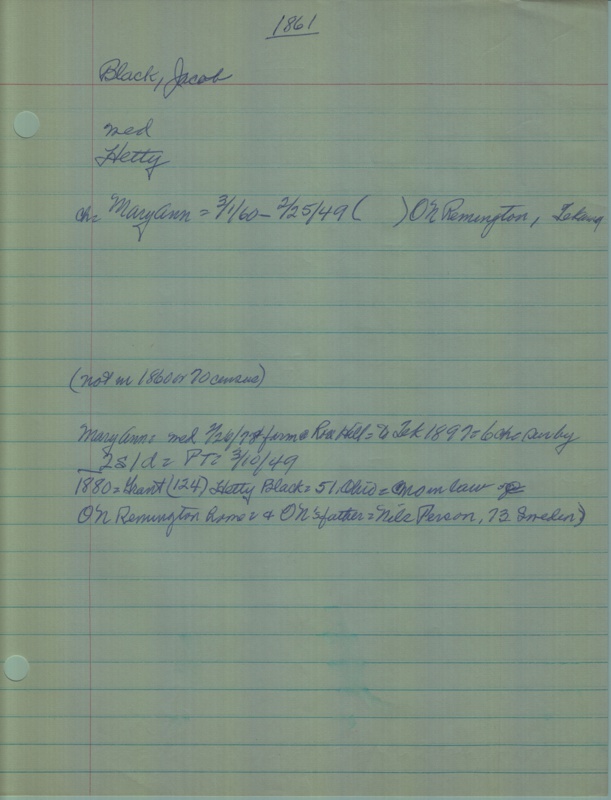 1861
Black, Jacob
med
Hetty
ch= MaryAnn = 3/1/60 – 2/25/49 (      ) ON Remington, Tekama
(not in 1860 or 70 census)
MaryAnn= med 7/26/7 farm @ Rose Hill = to Tek 1897= 6 ch= sur by
2s/d = PT= 3/10/49
1880=Grant (124) Hetty Black = 51 Ohio = mom law
ON Remington home= & ON's father = Nils Person, 73 Sweden)